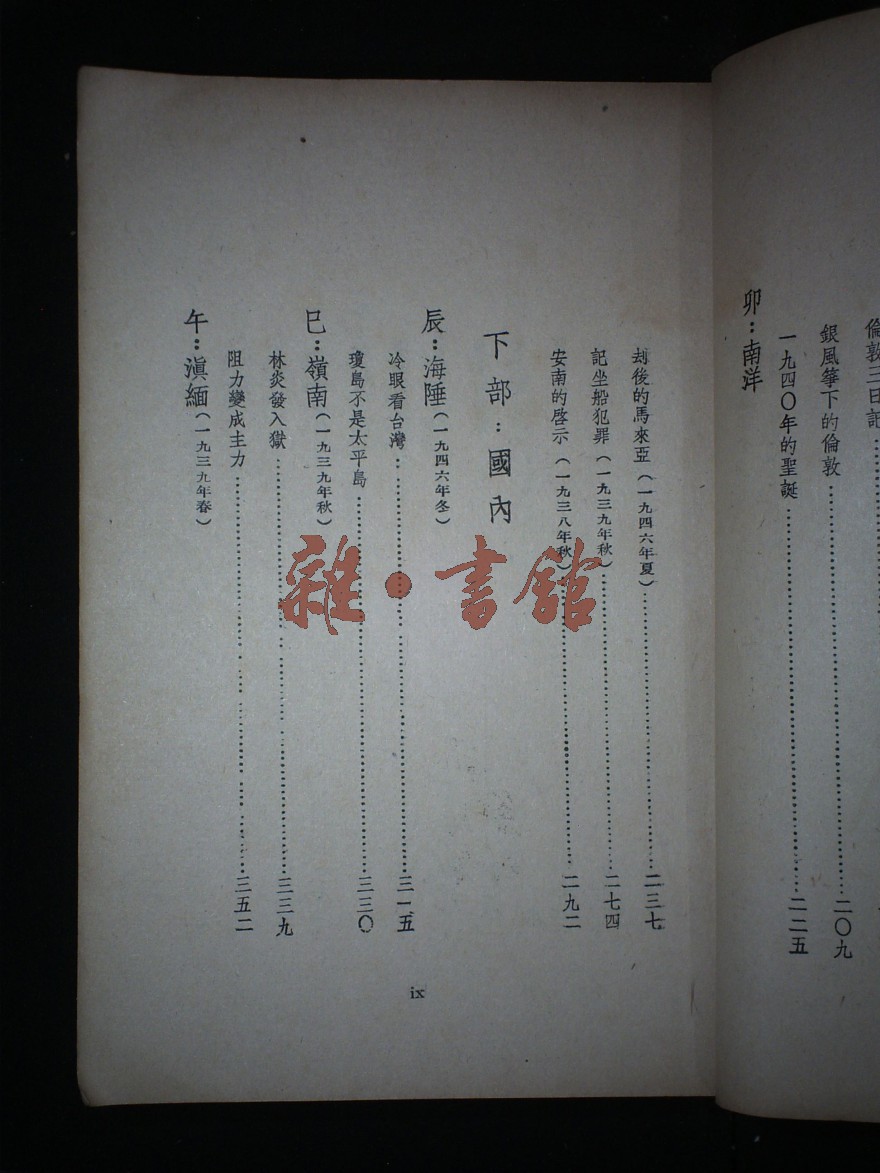 倫敦三日記
銀風箏下的倫敦……二〇九
一九四〇年的聖誕……二二五
卯：南洋
刼後的馬來亞（一九四六年夏）……二三七
記坐船犯罪（一九三九年秋）……二七四
安南的啓示（一九三八年秋）……二九二
下部：國內
辰：海陲（一九四六年冬）
冷眼看台灣……三一五
瓊島不是太平島……三三〇
巳：嶺南（一九三九年秋）
林炎發入獄……三三九
阻力變成主力……三五二
午：滇緬（一九三九年春）
ix
雜·書館